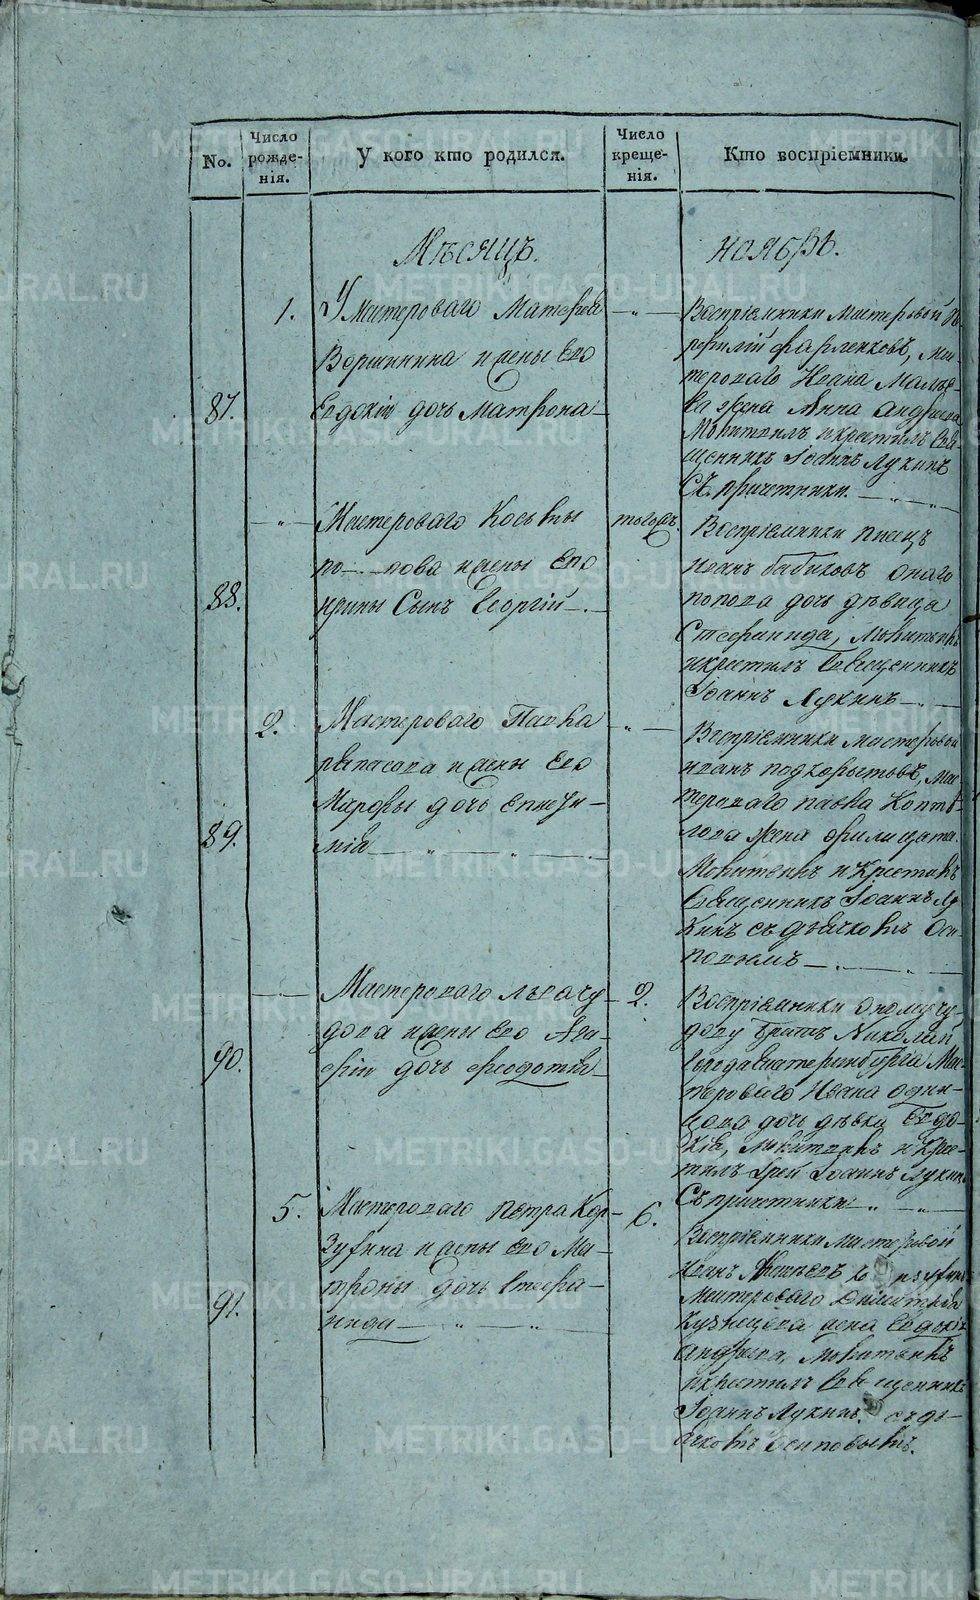 No.
Число рожде-нія.
У кого кто родился.
Число креще-нія.
Кто воспріемники.
Мѣсяцъ.
ноябрь.
87.
1.
У Мастероваго Матвея
Вершинина и жены его
Евдокіи дочь Матрона
Воспріемники мастеровой
фарленковъ, Мас-
тероваго Ивана
жена Анна Андреева
Молитвилъ и крестилъ Свя-
щенникъ Іоаннъ Лукинъ
Съ причетники.
88.
Мастероваго Козьмы
попова и жены его
ирины Сынъ Георгій
тогожъ.
Воспріемники писецъ
иванъ бабиковъ онаго
попова дочь дѣвица
Стефанида, Молитвилъ
и крестилъ Священникъ
Іоаннъ Лукинъ
89.
2.
Мастероваго Павла
репасова и жены его
Марфы дочь
Воспріемники мастеровой
иванъ подкорытовъ, мас
тероваго павла Коптѣ-
лова жена филицата.
Молитвилъ и Крестилъ
Священникъ Іоаннъ Лу
Кинъ съ дьячкомъ Оси
повымъ
90.
Мастероваго льва чу
дова и жены его Ага
фіи дочь феодотія
2.
Воспріемники оному чу-
дову братъ Николай
Города екатеринбурга Мас
тероваго Ивана один-
цова дочь дѣвка Евдо-
кія, Молитвилъ и Крес-
тилъ Іерей Іоаннъ Лукинъ
Съ причетники
91.
5.
Мастероваго петра Кор-
Зухина и жены его Ма-
троны дочь Стефа-
нида
6.
Воспріемники мастеровой
Иванъ
Мастероваго
Кузнецова жена Евдокія
Андреева, Молитвилъ
и крестилъ Священникъ
Іоаннъ Лукинъ. съ дь-
ячкомъ Осиповымъ.
METRIKI.GASO-URAL.RU